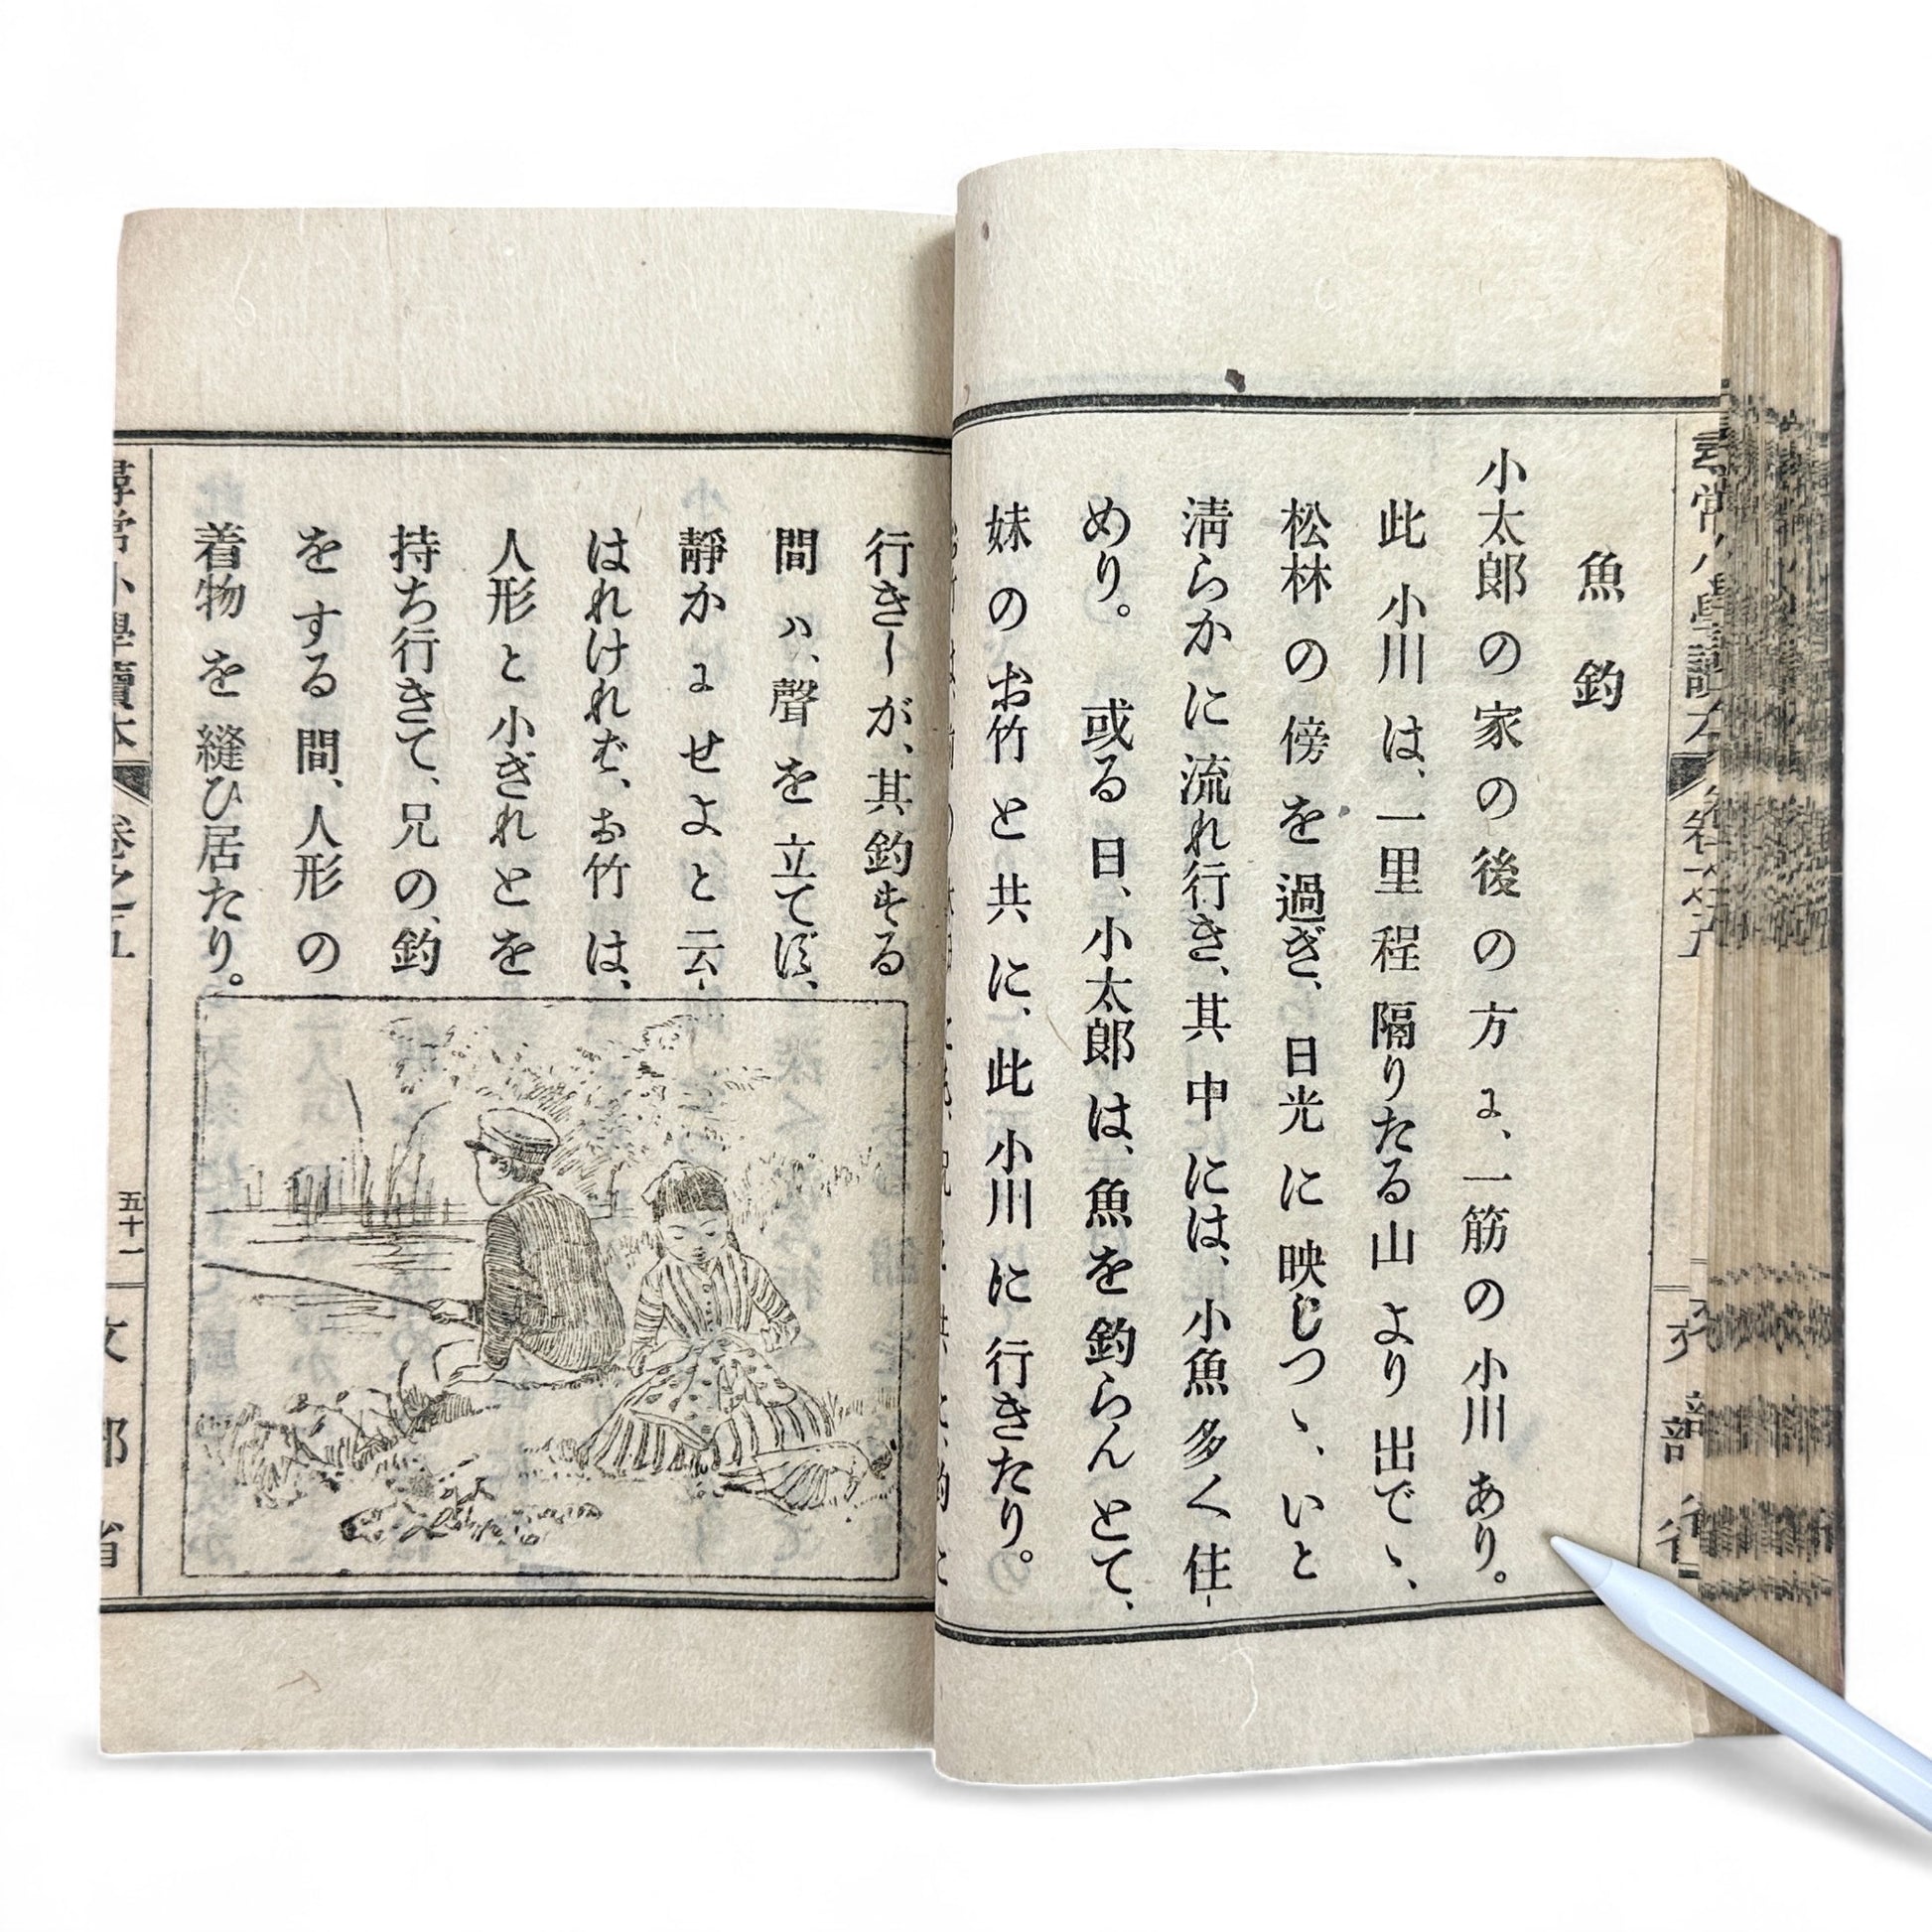 魚釣
小太郎の家の後の方に、一筋の小川あり。
此小川は、一里程隔りたる山より出でゝ、
松林の傍を過ぎ、日光に映じつゝ、いと
淸らかに流れ行き、其中には、小魚多く住-
めり。 或る日、小太郎は、魚を釣らんとて、
妹のお竹と共に、此小川に行きたり。
行きしが、其釣する
間ハ、聲を立てず、
靜かにせよと云-
はれければ、お竹は、
人形と小ぎれとを
持ち行きて、兄の、釣
をする間、人形の
着物を縫ひ居たり。
尋常小學讀本 卷之五 五十一 文部省